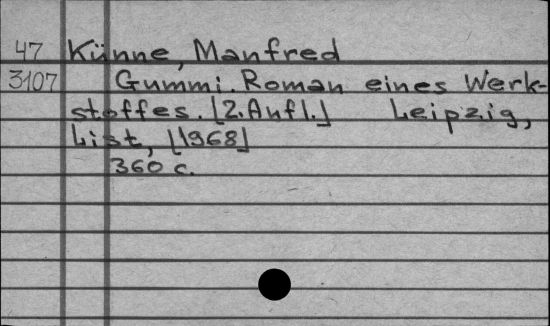 47 Künne, Manfred
3107 Gummi. Roman eines Werk-
stoffes. [2. Aufl.] Leipzig,
List, [1968]
360 c.